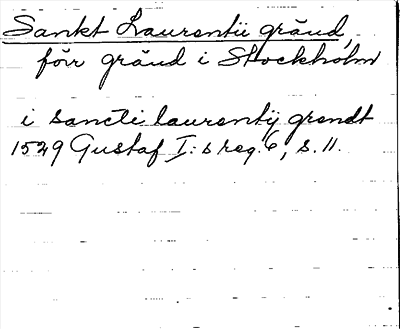 Sankt Laurentii gränd,
förr gränd i Stockholm
i sancti laurentij grendt
1529 Gustaf I:s reg. 6, s. 11.